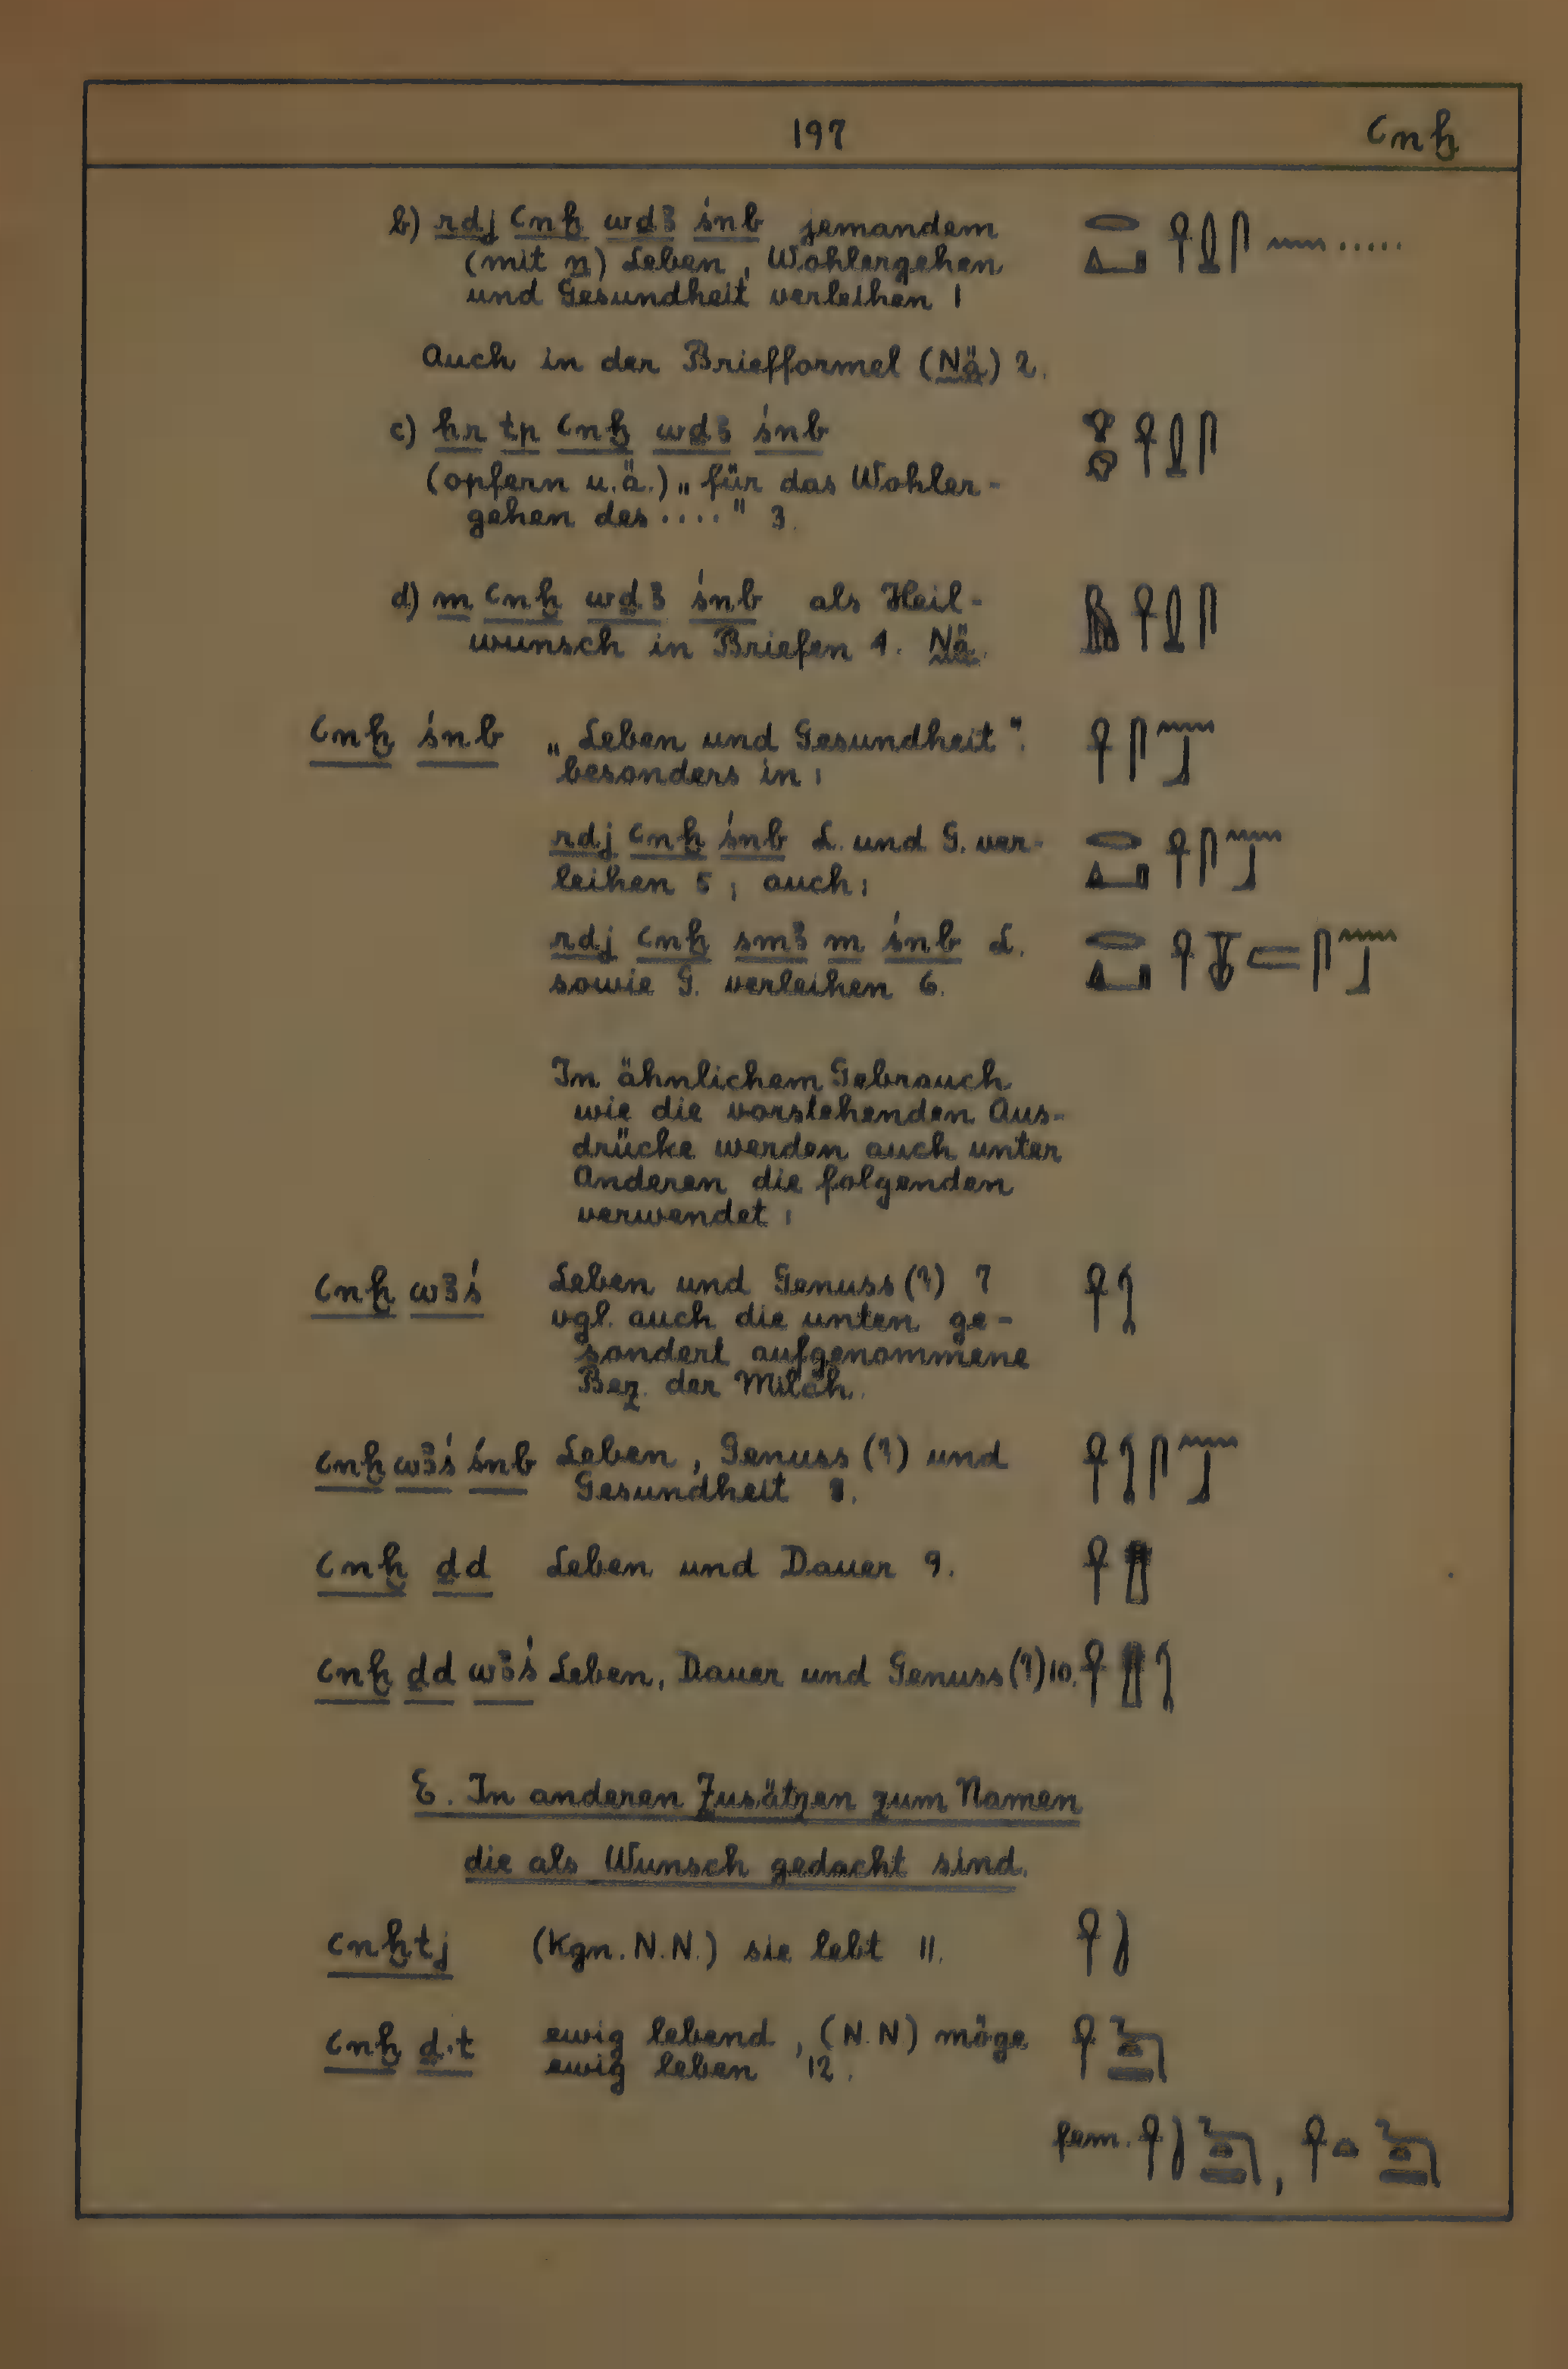 197 ꜥnḫ
b) rdj ꜥnḫ wḏꜣ śnb jemandem 𓂋𓂞 𓋹𓍑𓋴 𓈖 .....
(mit n) Leben, Wohlergehen
und Gesundheit verleihen 1
Auch in der Briefformel (Nä) 2.
c) ḥr tp ꜥnḫ wḏꜣ śnb 𓁷𓁶 𓋹𓍑𓋴
(opfern u.ä.) „für das Wohler-
gehen des ...." 3.
d) m ꜥnḫ wḏꜣ śnb als Heil- 𓅓 𓋹𓍑𓋴
wunsch in Briefen 4. Nä.
ꜥnḫ śnb „Leben und Gesundheit". 𓋹 𓋴𓈖𓃀
besonders in:
rdj ꜥnḫ śnb L. und G. ver- 𓂋𓂞 𓋹 𓋴𓈖𓃀
leihen 5; auch:
rdj ꜥnḫ smꜣ m śnb L. 𓂋𓂞 𓋹 𓄥 𓐝 𓋴𓈖𓃀
sowie G. verleihen 6.
In ähnlichem Gebrauch
wie die vorstehenden Aus-
drücke werden auch unter
Anderen die folgenden
verwendet:
ꜥnḫ wꜣś Leben und Genuss(?) 7 𓋹𓌀
vgl. auch die unten ge-
sondert aufgenommene
Bez. der Milch.
ꜥnḫ wꜣś śnb Leben, Genuss (?) und 𓋹𓌀𓋴𓈖𓃀
Gesundheit 8.
ꜥnḫ ḏd Leben und Dauer 9. 𓋹𓊽
ꜥnḫ ḏd wꜣś Leben, Dauer und Genuss(?) 10. 𓋹𓊽𓌀
E. In anderen Zusätzen zum Namen
die als Wunsch gedacht sind.
ꜥnḫtj (Kgn. N.N.) sie lebt 11. 𓋹𓍘
ꜥnḫ ḏ.t ewig lebend, (N.N) möge 𓋹𓆓𓏏𓇿
ewig leben 12.
fem. 𓋹𓍘𓆓𓏏𓇿, 𓋹𓏏𓆓𓏏𓇿